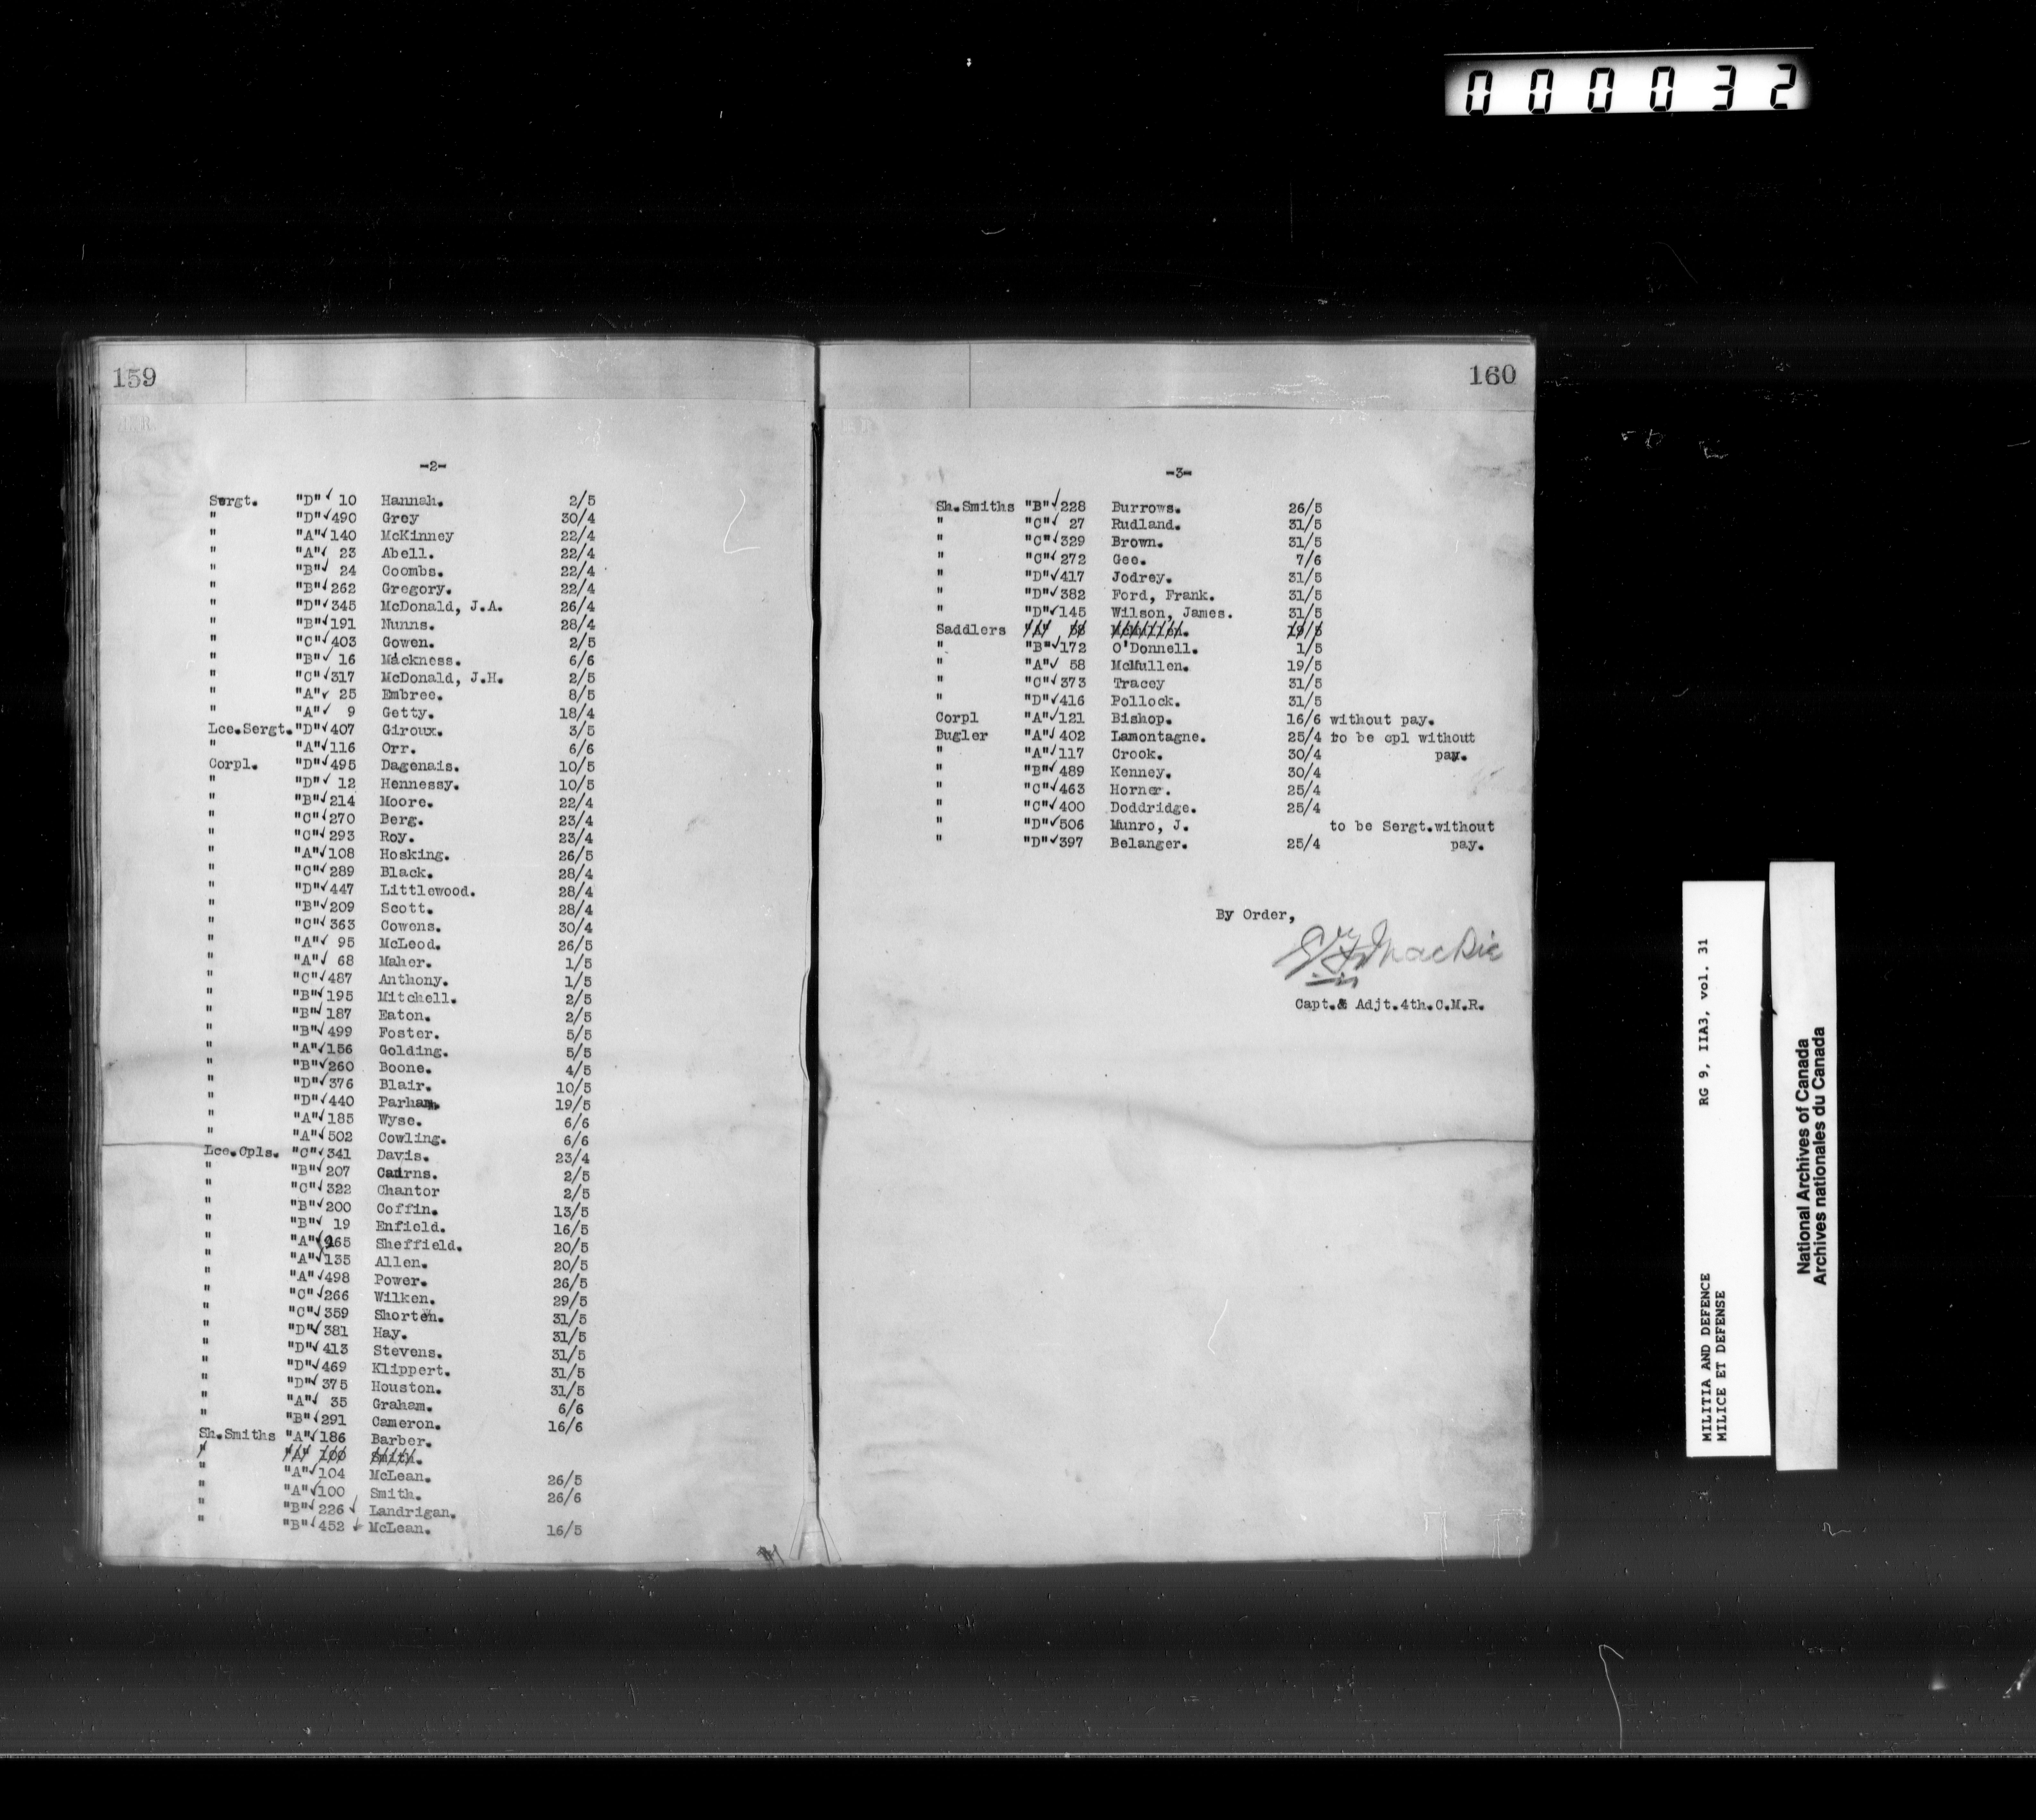 000032
159
-2-
Sergt. "D" 10 Hannah. 2/5
" "D" 490 Grey 30/4
" "A" 140 McKinney 22/4
" "A" 23 Abell. 22/4
" "B" 24 Coombs. 22/4
" "B" 262 Gregory. 22/4
" "D" 345 McDonald, J.A. 26/4
" "B" 191 Nunns. 28/4
" "C" 403 Gowen. 2/5
" "B" 16 Mackness. 6/6
" "C" 317 McDonald, J.H. 2/5
" "A" 25 Embree. 8/5
" "A" 9 Getty. 18/4
Lce.Sergt. "D" 407 Giroux. 3/5
" "A" 116 Orr. 6/6
Corpl. "D" 495 Dagenais. 10/5
" "D" 12 Hennessy. 10/5
" "B" 214 Moore. 22/4
" "C" 270 Berg. 23/4
" "C" 293 Roy. 23/4
" "A" 108 Hosking. 26/5
" "C" 289 Black. 28/4
" "D" 447 Littlewood. 28/4
" "B" 209 Scott. 28/4
" "C" 363 Cowens. 30/4
" "A" 95 McLeod. 26/5
" "A" 68 Maher. 1/5
" "C" 487 Anthony. 1/5
" "B" 195 Mitchell. 2/5
" "B" 187 Eaton. 2/5
" "B" 499 Foster. 5/5
" "A" 156 Golding. 5/5
" "B" 260 Boone. 4/5
" "D" 376 Blair. 10/5
" "D" 440 Parham. 19/5
" "A" 185 Wyse. 6/6
" "A" 502 Cowling. 6/6
Lce.Cpls. "C" 341 Davis. 23/4
" "B" 207 Cairns. 2/5
" "C" 322 Chantor 2/5
" "B" 200 Coffin. 13/5
" "B" 19 Enfield. 16/5
" "A" 165 Sheffield. 20/5
" "A" 135 Allen. 20/5
" "A" 498 Power. 26/5
" "C" 266 Wilken. 29/5
" "C" 359 Shorten. 31/5
" "D" 381 Hay. 31/5
" "D" 413 Stevens. 31/5
" "D" 469 Klippert. 31/5
" "D" 375 Houston. 31/5
" "A" 35 Graham. 6/6
" "B" 291 Cameron. 16/6
Sh.Smiths "A" 186 Barber.
" "A" 100 Smith.
" "A" 104 McLean. 26/5
" "A" 100 Smith. 26/6
" "B" 226 Landrigan.
" "B" 452 McLean. 16/5
160
-3-
Sh.Smiths "B" 228 Burrows. 26/5
" "C" 27 Rudland. 31/5
" "C" 329 Brown. 31/5
" "C" 272 Gee. 7/6
" "D" 417 Jodrey. 31/5
" "D" 382 Ford, Frank. 31/5
" "D" 145 Wilson, James. 31/5
Saddlers "A" 58 McMullen. 19/5
" "B" 172 O'Donnell. 1/5
" "A" 58 McMullen. 19/5
" "C" 373 Tracey 31/5
" "D" 416 Pollock. 31/5
Corpl "A" 121 Bishop. 16/6 without pay.
Bugler "A" 402 Lamontagne. 25/4 to be cpl without
" "A" 117 Crook. 30/4 pay.
" "B" 489 Kenney. 30/4
" "C" 463 Horner. 25/4
" "C" 400 Doddridge. 25/4
" "D" 506 Munro, J. to be Sergt.without
" "D" 397 Belanger. 25/4 pay.
By Order,
Mackie
Capt.& Adjt.4th.C.M.R.
MILITIA AND DEFENCE RG 9, IIA3, vol. 31
MILICE ET DEFENSE
National Archives of Canada
Archives nationales du Canada